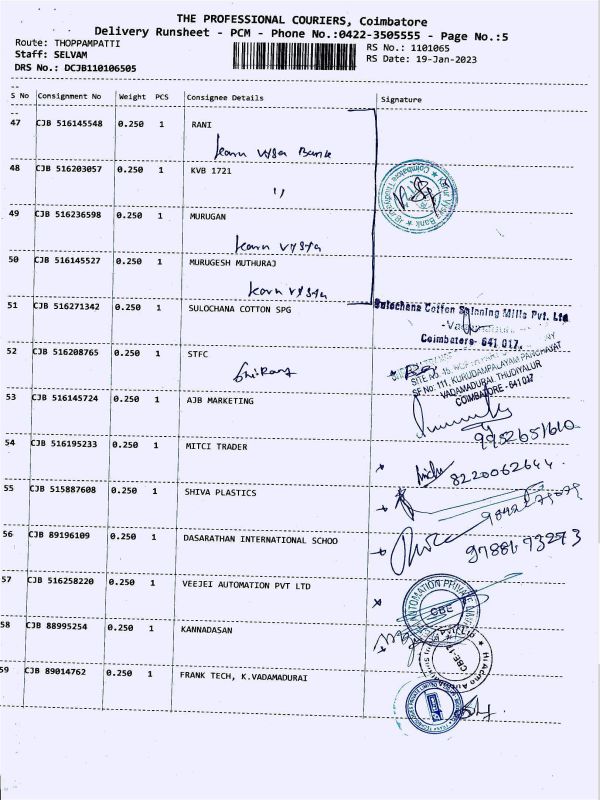 THE PROFESSIONAL COURIERS, Coimbatore
Delivery Runsheet - PCM - Phone No.:0422-3505555 - Page No.:5
Route: THOPPAMPATTI
RS No.: 1101065
Staff: SELVAM
RS Date: 19-Jan-2023
DRS No.: DCJB110106505
S No Consignment No Weight PCS Consignee Details Signature
47 CJB 516145548 0.250 1 RANI
Karur Vysya Bank
48 CJB 516203057 0.250 1 KVB 1721
"
49 CJB 516236598 0.250 1 MURUGAN
Karur Vysya
50 CJB 516145527 0.250 1 MURUGESH MUTHURAJ
Karur Vysya
51 CJB 516271342 0.250 1 SULOCHANA COTTON SPG
Sulochana Cotton Spinning Mills Pvt. Ltd
Coimbatore- 641 017.
52 CJB 516208765 0.250 1 STFC
SF No: 111, KURUDAMPALAYAM PANCHAYAT
VADAMADURAI, THUDIYALUR
COIMBATORE - 641 017
53 CJB 516145724 0.250 1 AJB MARKETING
9952651610
54 CJB 516195233 0.250 1 MITCI TRADER
8220062644
55 CJB 515887608 0.250 1 SHIVA PLASTICS
56 CJB 89196109 0.250 1 DASARATHAN INTERNATIONAL SCHOO
57 CJB 516258220 0.250 1 VEEJEI AUTOMATION PVT LTD
AUTOMATION PRIVATE
CBE
58 CJB 88995254 0.250 1 KANNADASAN
59 CJB 89014762 0.250 1 FRANK TECH, K.VADAMADURAI